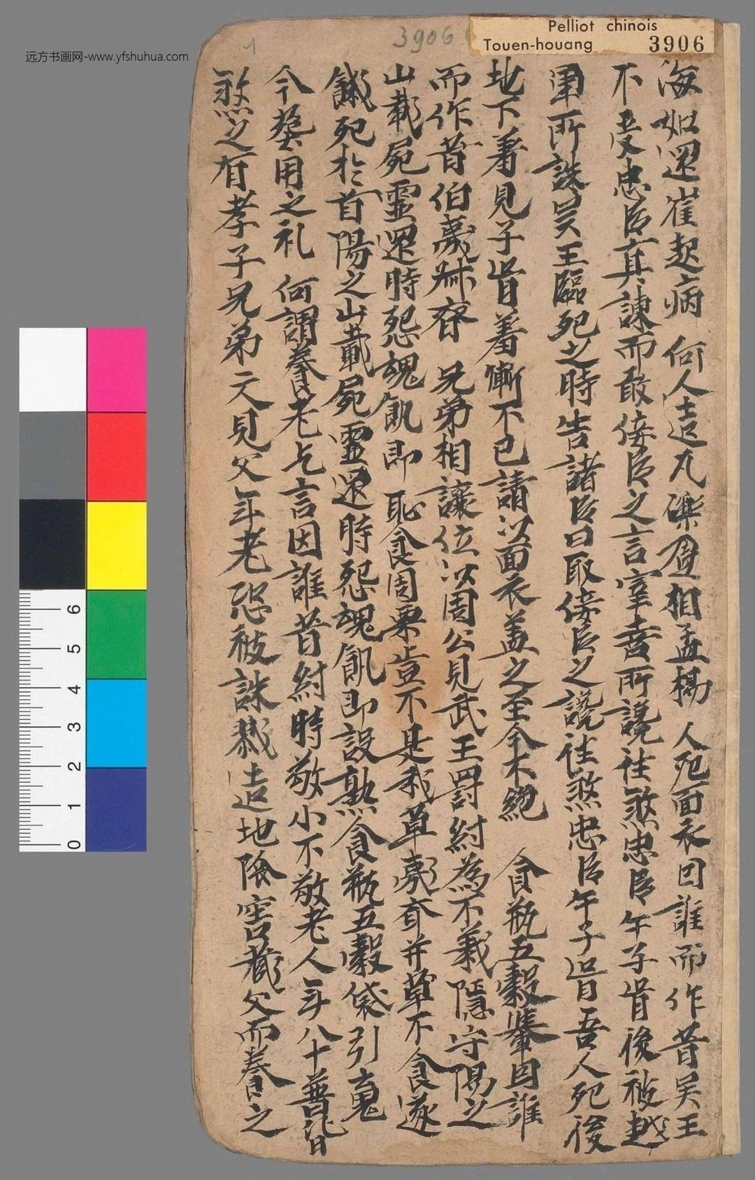 远方书画网-www.yfshuhua.com
1
3906
Pelliot chinois
Touen-houang 3906
海如還崔起病 何人造九礫廈相孟橋 人死面衣因誰而作昔吳王
不受忠臣真諫而敢佞臣之言宰嚭所讒枉煞忠臣午子胥後被越
軍所誅吴王臨死之時告諸臣曰取佞臣之讒枉煞忠臣午子胥吾人死後
地下著見子胥羞慚不已請以面衣盖之至今不絶 食瓶五穀轝因誰
而作昔伯夷叔齊 兄弟相讓位以周公見武王罸紂為不義隱守陽之
山載屍靈還時恐魂飢即 恥食周粟豈不是我草夷齊并草不食遂
餓死於首陽之山載屍靈還時恐魂飢即設熟食瓶五穀袋引魂
今葬用之礼 何謂養老乞言因誰昔紂時敬小不敬老人年八十普皆
煞之有孝子兄弟二人見父年老恐被誅戮造地陰窖藏父而養之
6
5
4
3
2
1
0